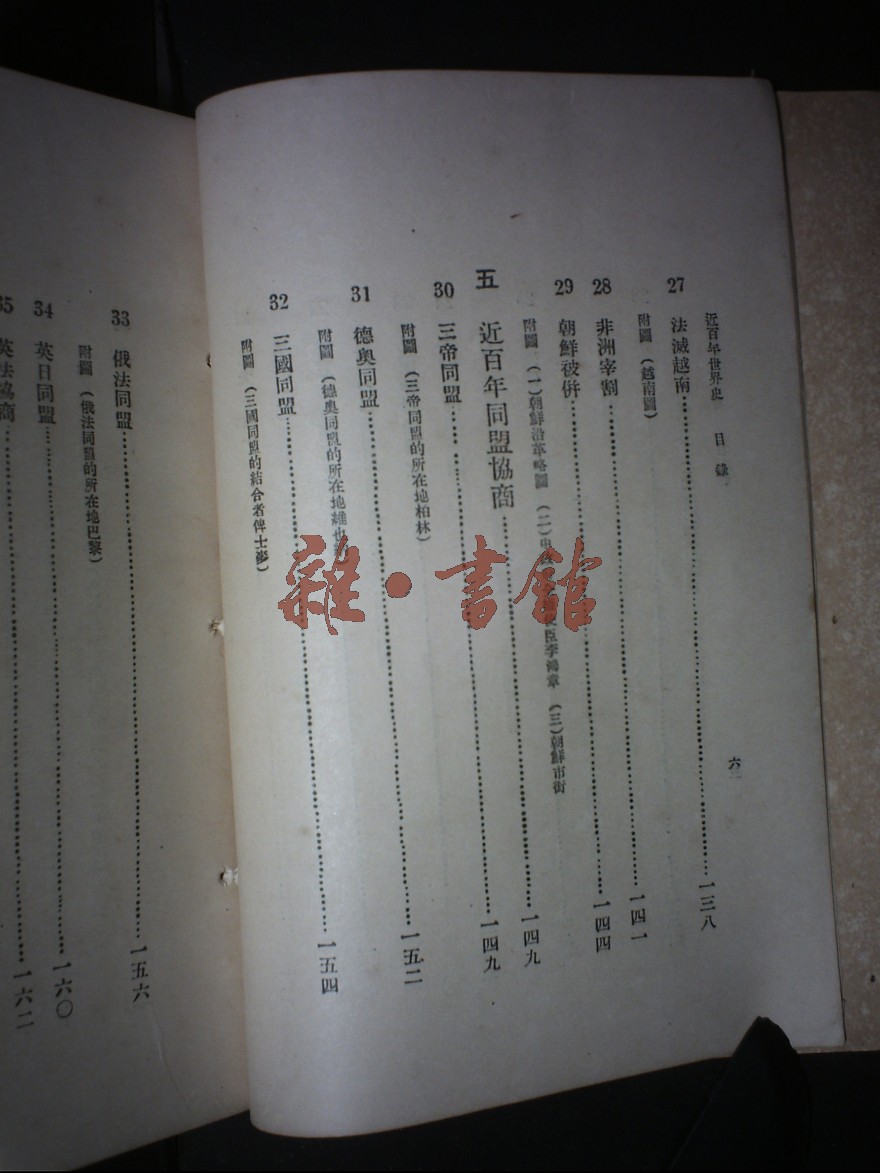 近百年世界史 目錄
六
27 法滅越南……一三八
附圖 (越南圖)
28 非洲宰割……一四一
29 朝鮮被併……一四四
附圖 (一)朝鮮沿革略圖 (二) 臣李鴻章 (三)朝鮮市街
五 近百年同盟協商……一四九
30 三帝同盟……一四九
附圖 (三帝同盟的所在地柏林)
31 德奧同盟……一五二
附圖 (德奧同盟的所在地維也
32 三國同盟……一五四
附圖 (三國同盟的結合者俾士麥)
33 俄法同盟……一五六
附圖 (俄法同盟的所在地巴黎)
34 英日同盟……一六〇
35 英法協商……一六二
雜·書館